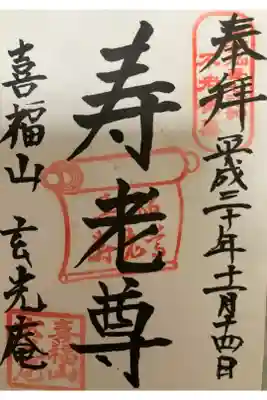 奉拝 平成三十年十二月十四日
寿老尊
喜福山 玄光庵